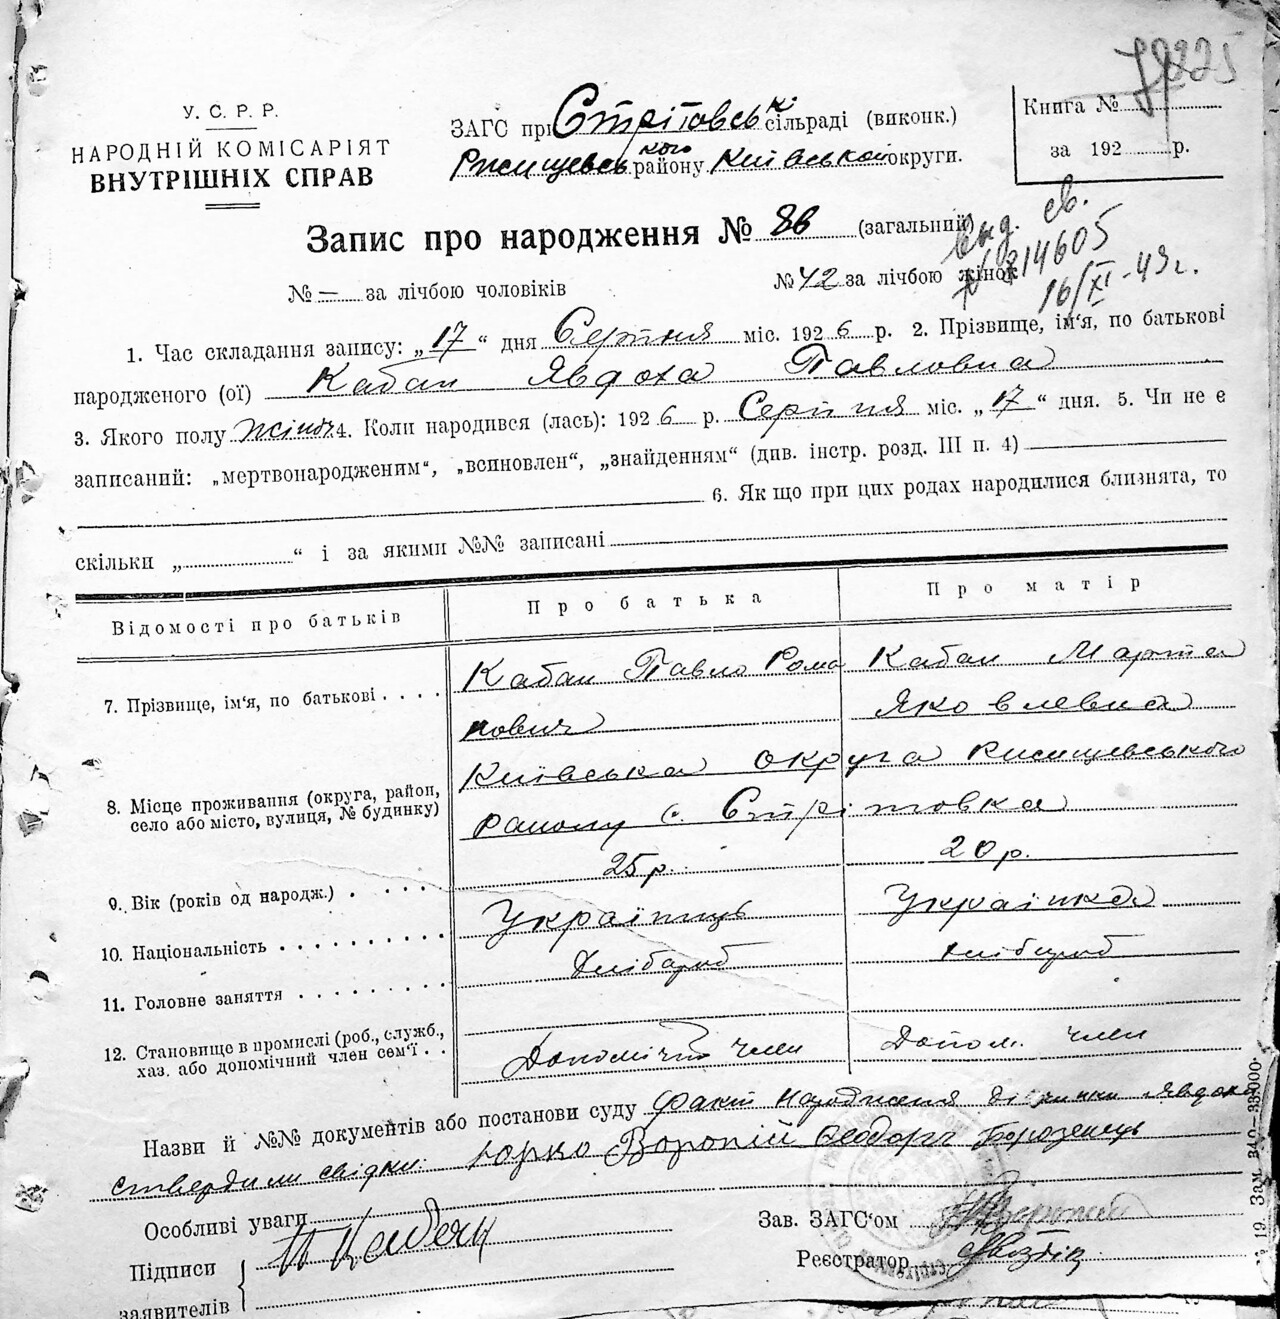 У. С. Р. Р.
НАРОДНІЙ КОМІСАРІЯТ
ВНУТРІШНІХ СПРАВ
ЗАГС при Стрітовськ. сільраді (виконк.)
Ржищевського району Київської округи.
Книга №
за 192 р.
225
Запис про народження № 86 (загальний)
№ — за лічбою чоловіків
№ 42 за лічбою жінок
Вид. св.
814605
16/XI-43г.
1. Час складання запису: „17“ дня Серпня міс. 1926 р. 2. Прізвище, ім‘я, по батькові
народженого (ої) Кабан Явдоха Павловна
3. Якого полу жіноч. 4. Коли народився (лась): 1926 р. Серпня міс. „17“ дня. 5. Чи не є
записаний: „мертвонародженим“, „всиновлен“, „знайденням“ (див. інстр. розд. III п. 4)
6. Як що при цих родах народилися близнята, то
скільки „ “ і за якими №№ записані
Відомості про батьків
Про батька
Про матір
7. Прізвище, ім‘я, по батькові . . . .
Кабан Павло Рома
нович
Кабан Марта
Яковлевна
8. Місце проживання (округа, район,
село або місто, вулиця, № будинку)
Київська округа Ржищевського
району с. Стрітовка
9. Вік (років од народж.) . . . . .
25 р.
20 р.
10. Національність . . . . . . . . . .
Українець
Українка
11. Головне заняття . . . . . . . . .
Хлібороб
хлібороб
12. Становище в промислі (роб., служб.,
хаз. або допомічний член сем‘ї . .
Допомічний член
Допом. член
Назви й №№ документів або постанови суду Факт народження дитинки Явдохи
ствердили свідки: Юрко Воропій Феодор Борозенець
Особливі уваги
Підписи
заявителів
П Кабан
Зав. ЗАГС‘ом Воропай
Реєстратор
19. Зам. 340—33.000.